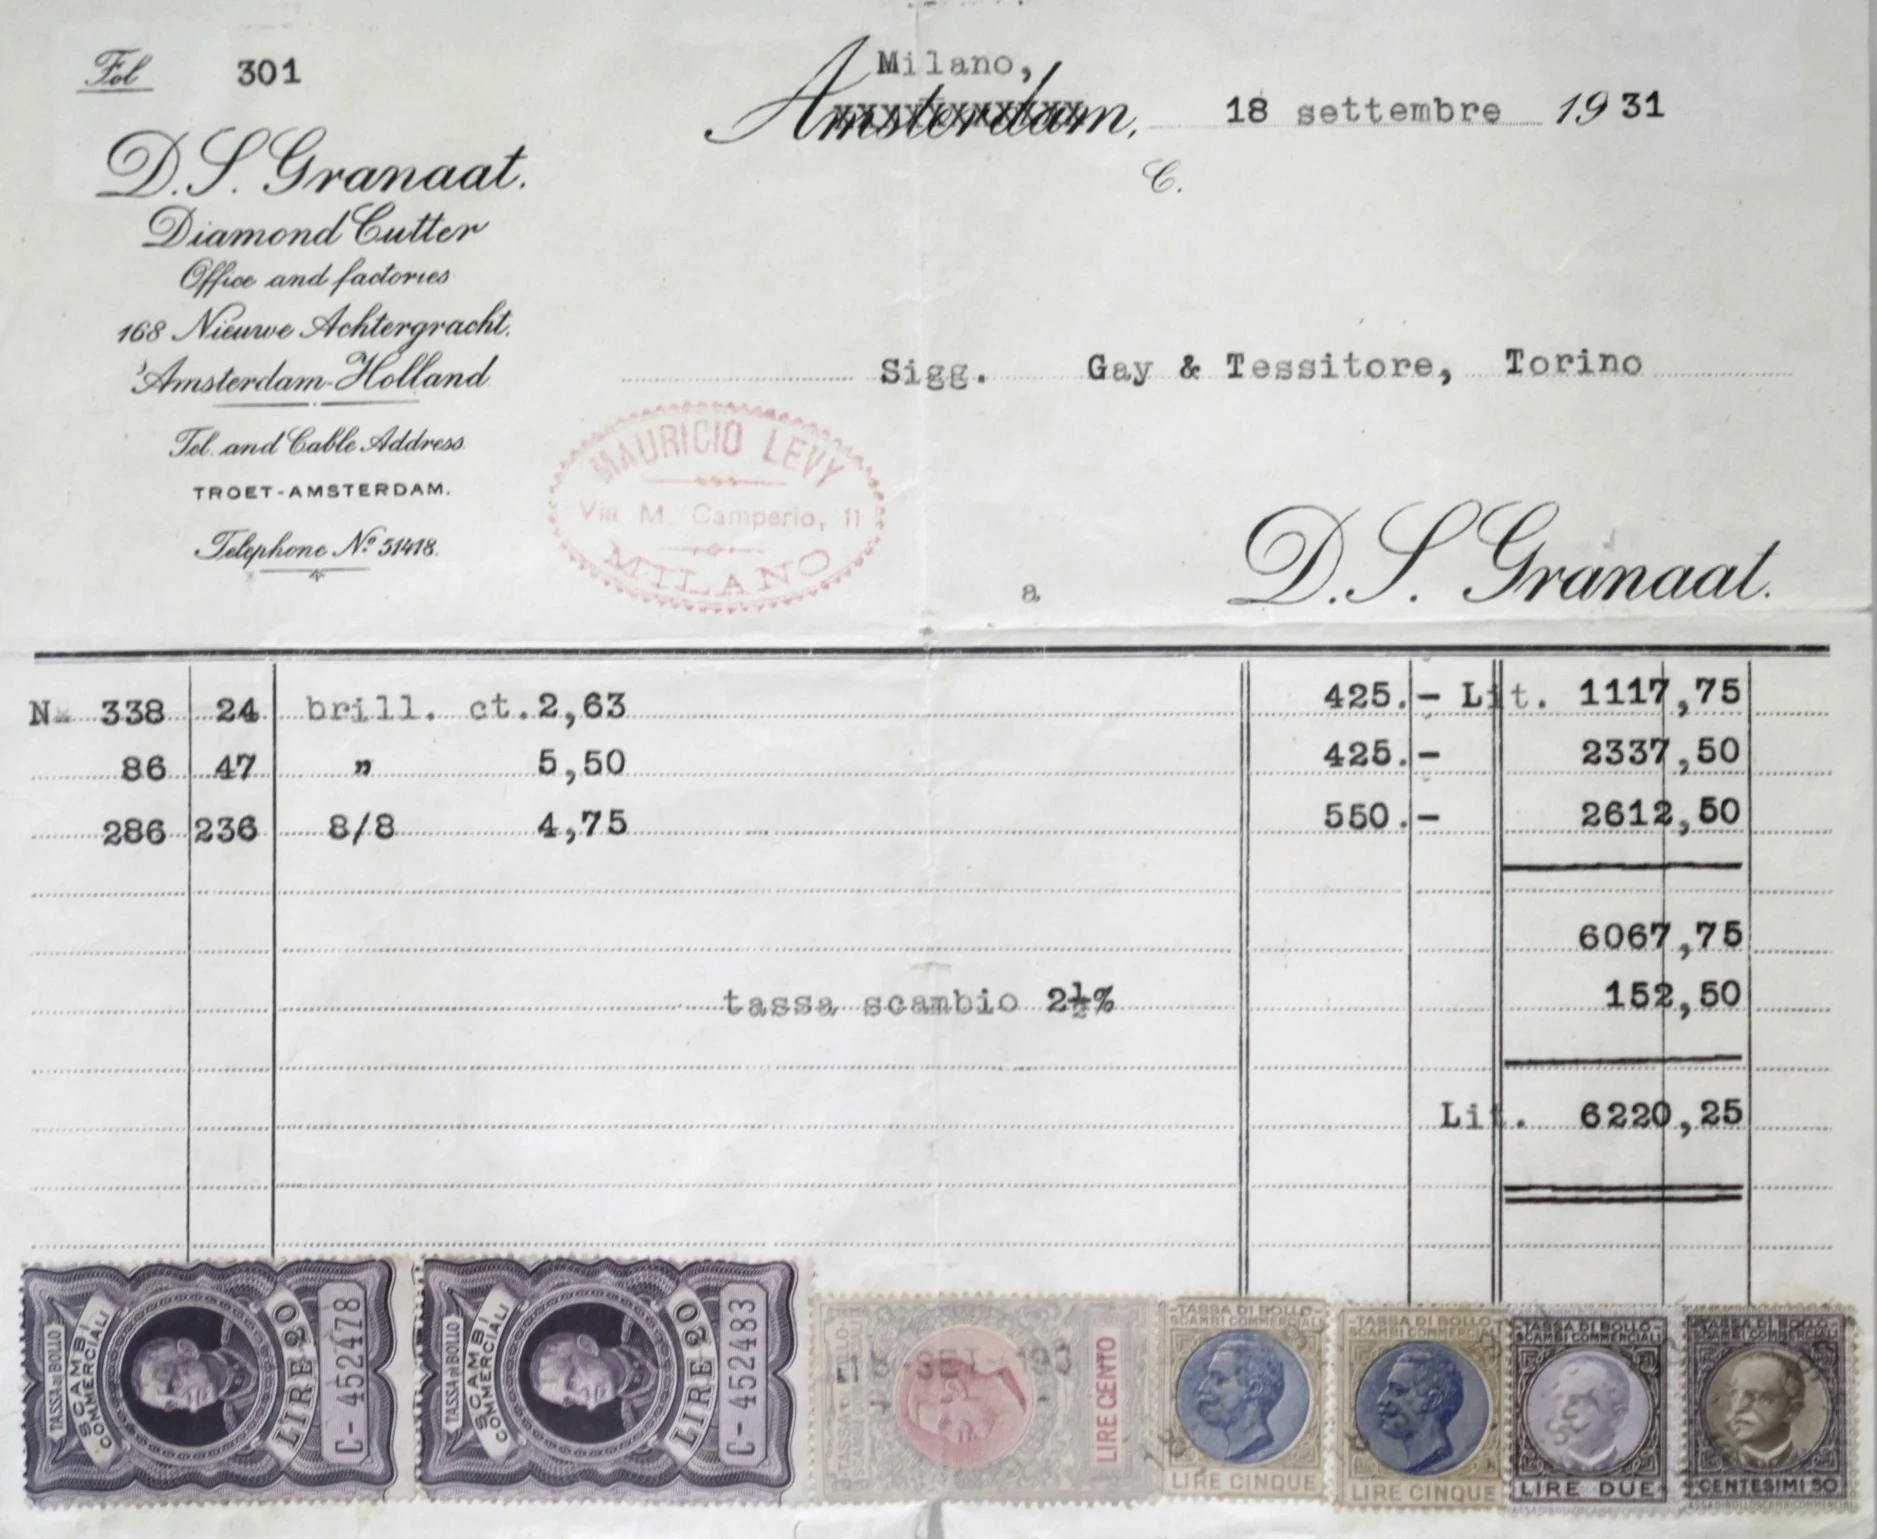 Fol 301
Milano,
Amsterdam, 18 settembre 1931
C.
D.S. Granaat.
Diamond Cutter
Office and factories
168 Nieuwe Achtergracht.
Amsterdam-Holland
Tel. and Cable Address
TROET-AMSTERDAM.
Telephone No. 51418.
Sigg. Gay & Tessitore, Torino
MAURICIO LEVY
Via M. Camperio, 11
MILANO
a D.S. Granaat.
No 338 24 brill. ct. 2,63 425.- Lit. 1117,75
86 47 " 5,50 425.- 2337,50
286 236 8/8 4,75 550.- 2612,50
6067,75
tassa scambio 2½% 152,50
Lit. 6220,25
TASSA DI BOLLO
SCAMBI COMMERCIALI
LIRE 20
C-452478
TASSA DI BOLLO
SCAMBI COMMERCIALI
LIRE 20
C-452483
LIRE CENTO
TASSA DI BOLLO
SCAMBI COMMERCIALI
LIRE CINQUE
TASSA DI BOLLO
SCAMBI COMMERCIALI
LIRE CINQUE
TASSA DI BOLLO
SCAMBI COMMERCIALI
LIRE DUE
TASSA DI BOLLO
SCAMBI COMMERCIALI
CENTESIMI 50